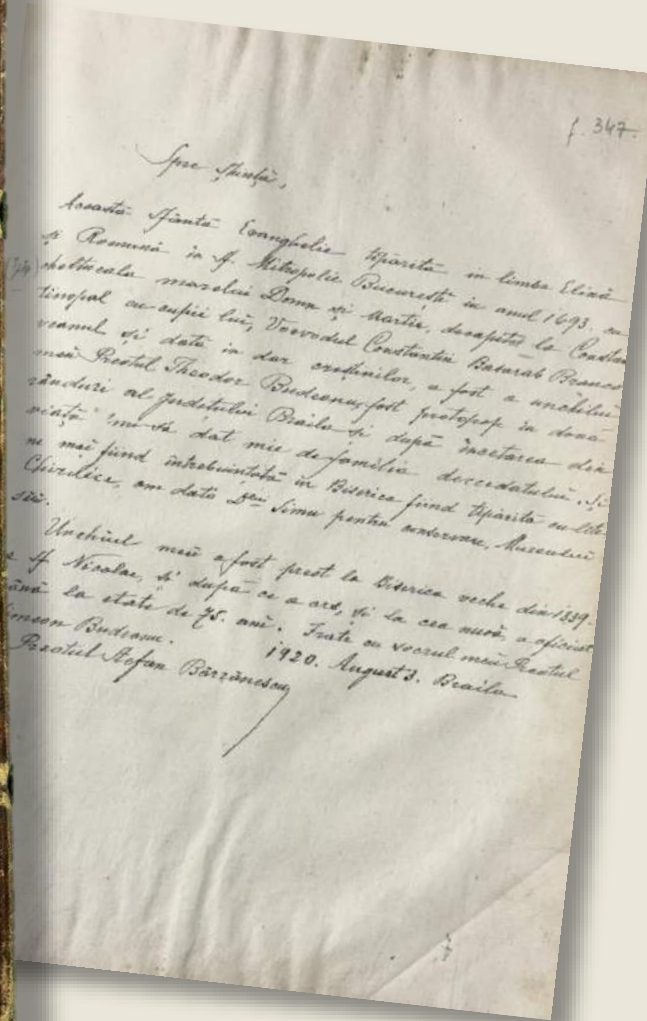 f. 347.
Spre știință,
Această sfântă Evanghelie tipărită în limba Elină
și Română în sf. Mitropolie București în anul 1693. cu
cheltueala marelui Domn și Martir, decapitat la Constan
tinopol cu copii lui, Voevodul Constantin Basarab Branco
veanul și dată în dar creștinilor, a fost a unchiului
meu Preotul Theodor Budeanu, fost protopop în două
rânduri al județului Braila și după încetarea din
viață mi sa dat mie de familia decedatului. Și
ne mai fiind întrebuințată în Biserică fiind tipărită cu lite
Chirilice, am dato Dlui Simu pentru conservare, Museului
săŭ.
Unchiul meŭ a fost preot la Biserica veche din 1839.
Sf Nicolae, și după ce a ars, și la cea nouă, a oficiat
până la etate de 75. ani. Frate cu socrul meŭ Preotul
Simeon Budeanu.
1920. August 3. Braila
Preotul Stefan Bărzănescu